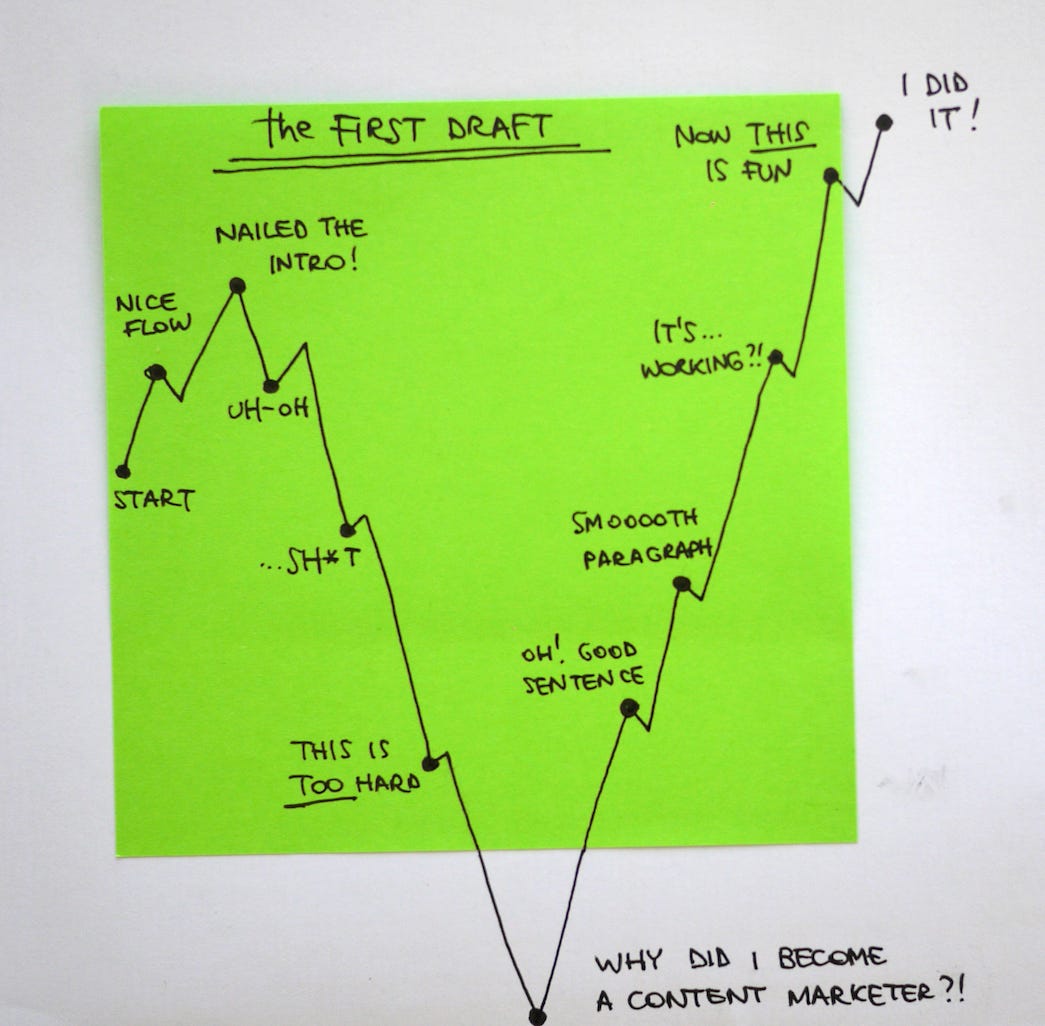 the FIRST DRAFT
START
NICE
FLOW
NAILED THE
INTRO!
UH-OH
...SH*T
THIS IS
TOO HARD
WHY DID I BECOME
A CONTENT MARKETER?!
OH! GOOD
SENTENCE
SMOOOOTH
PARAGRAPH
IT'S...
WORKING?!
NOW THIS
IS FUN
I DID
IT!